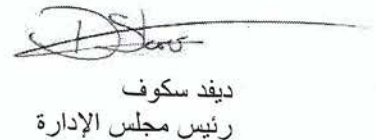 ديفد سكوف
رئيس مجلس الإدارة